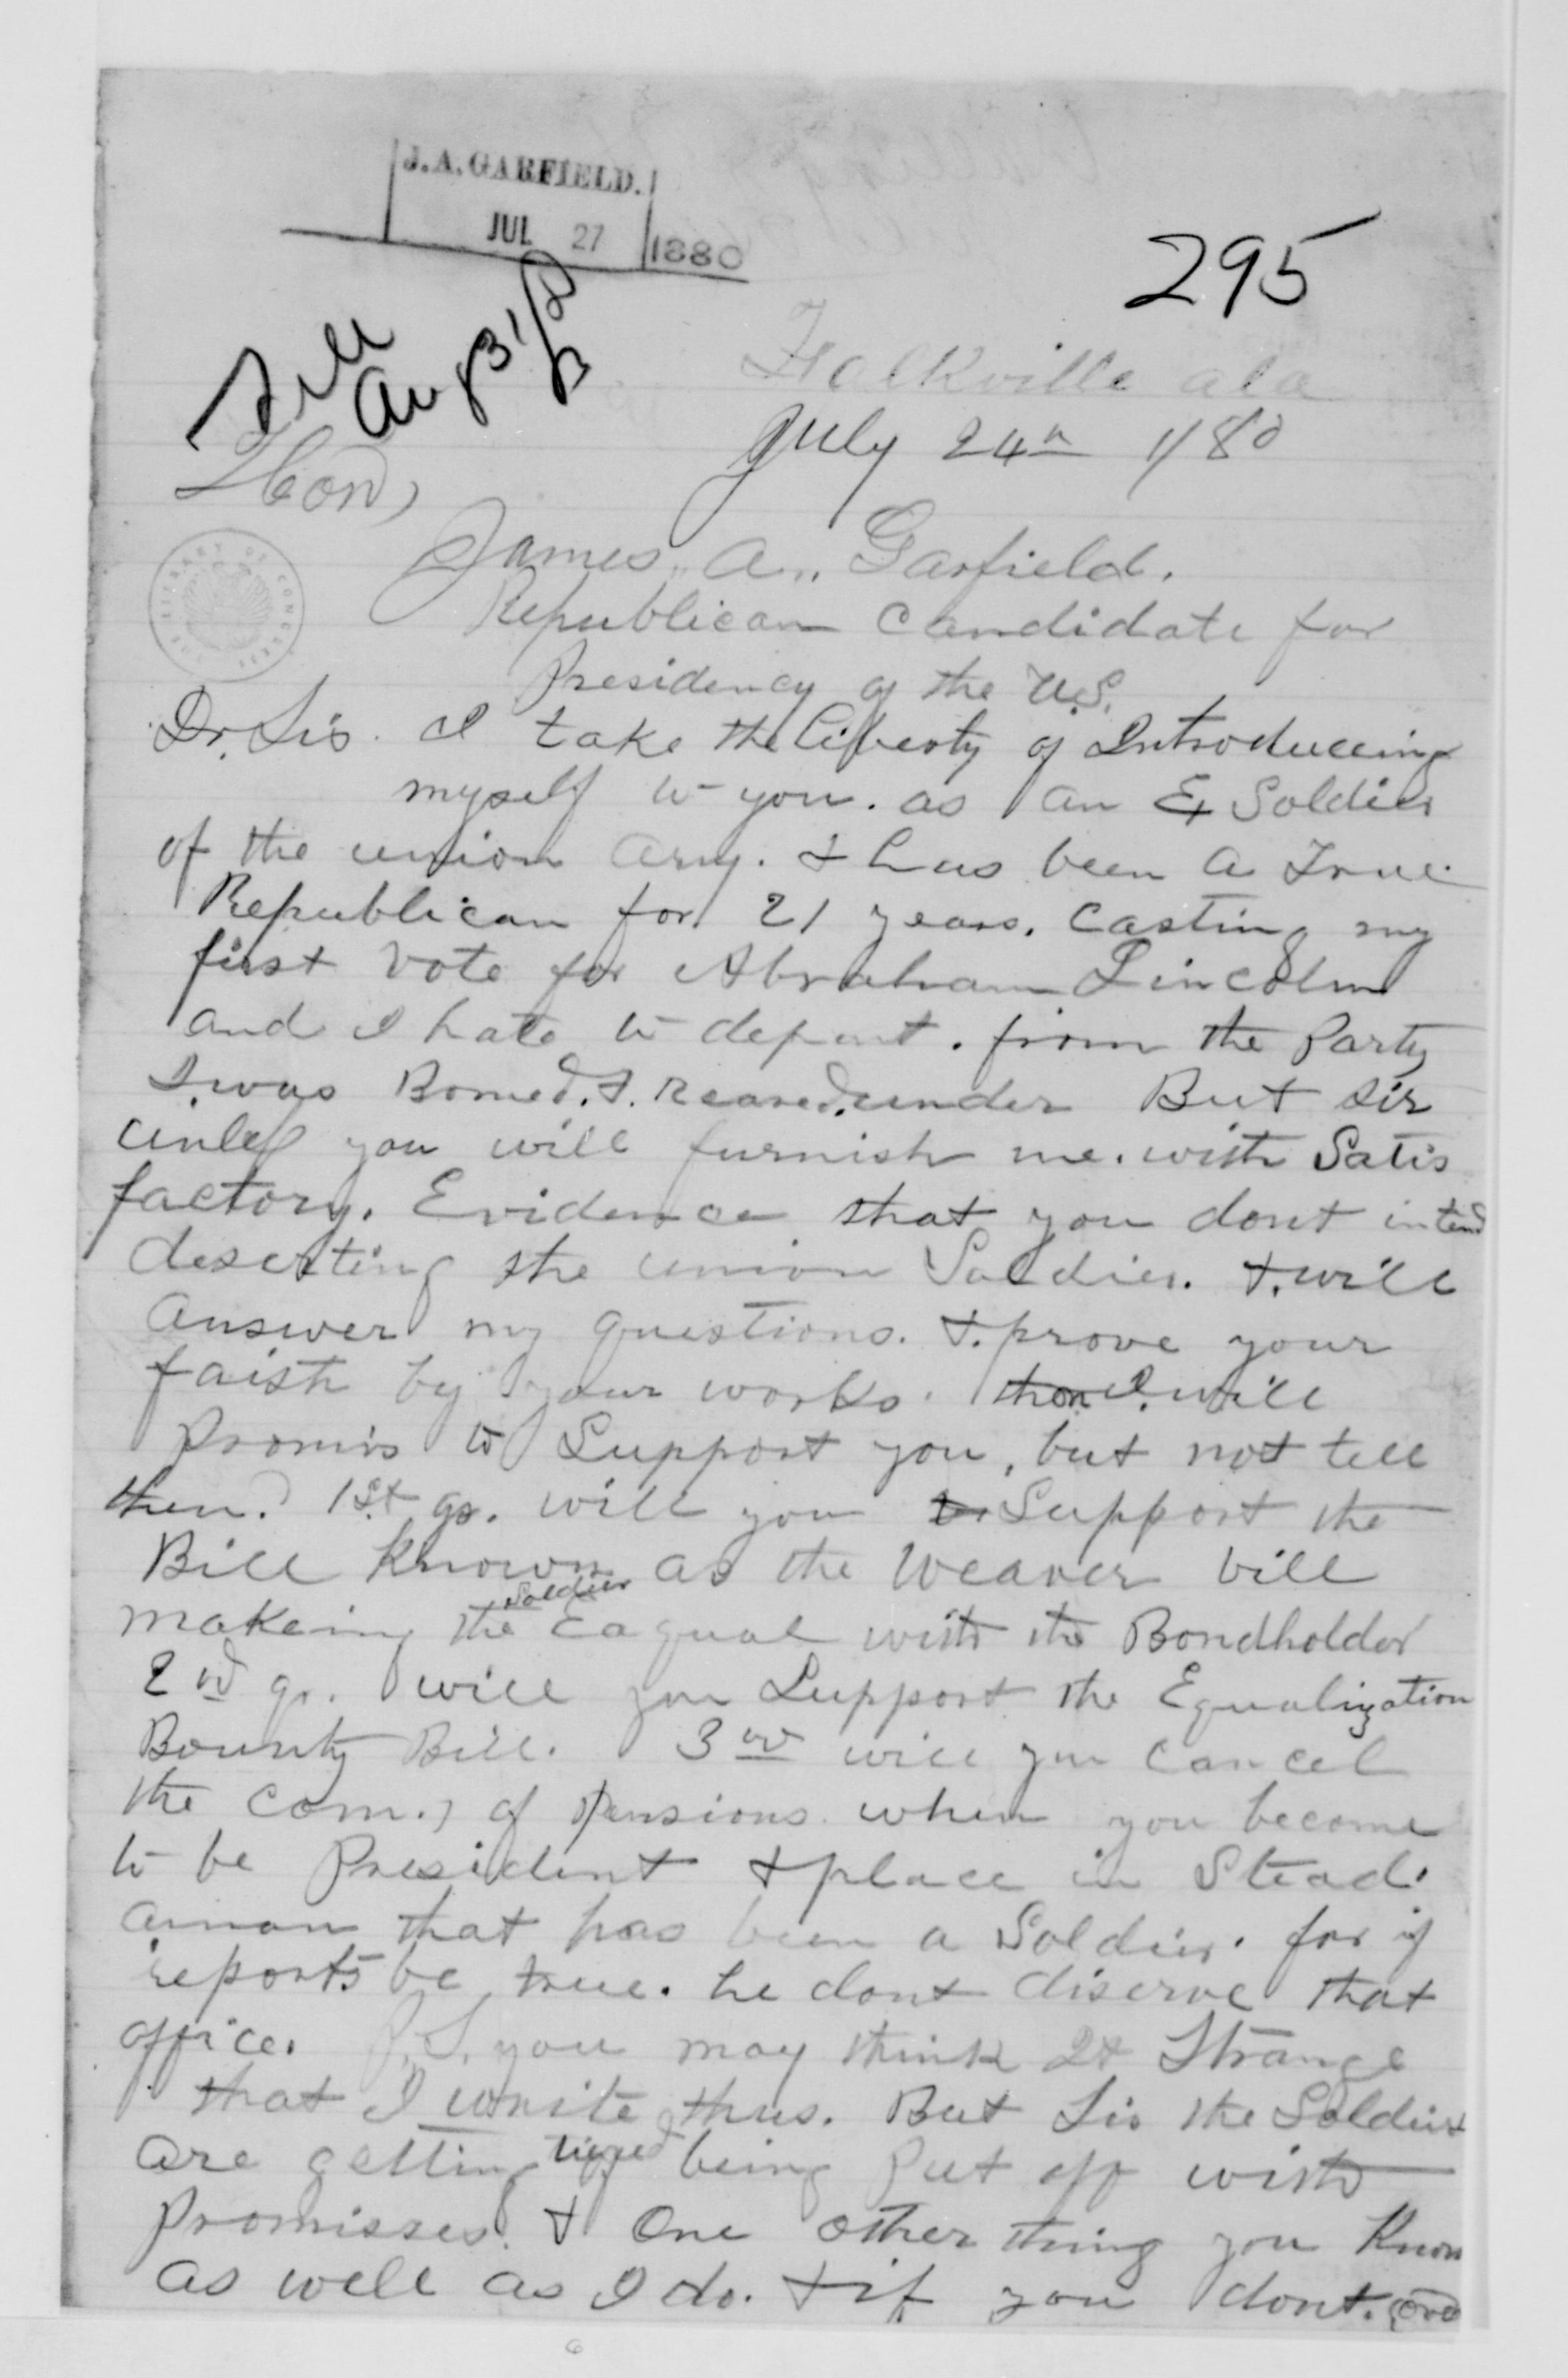 J.A. GARFIELD.
JUL 27 1880
295
Aug 3/80
Falkville ala
July 24th 1/80
Hon,
James. A.. Garfield.
Republican Candidate for
Presidency of the U.S.
LIBRARY OF CONGRESS
Dr. Sir. I take the liberty of Introduceing
myself to you. as an Ex Soldier
of the union Army. & has been a True
Republican for 21 years. Casting my
first Vote for Abraham Lincoln
and I hate to depart. from the Party
I. was Borned. &. Reared. under But Sir
unless you will furnish me. with Satis
factory. Evidence that you dont intend
deserting the union Soldier. &. will
answer my questions. &. prove your
faith by your works. then I. will
Promis to Support you, but not tell
then. 1st qs. will you Support the
Bill Known as the Weaver bill
makeing the Soldier Eaqual with the Bondholder
2nd qs. will you Support the Equalization
Bounty Bill. 3rd will you Cancel
the Com., of Pensions when you become
to be President & place in Stead.
aman that has been a Soldier. for if
reports be true. he dont diserve that
office. P.S. you may think It Strange
that I write thus. But Sir the Soldiers
are getting tired being Put off with
Promisses. & One other thing you Know
as well as I do. & if you dont. over